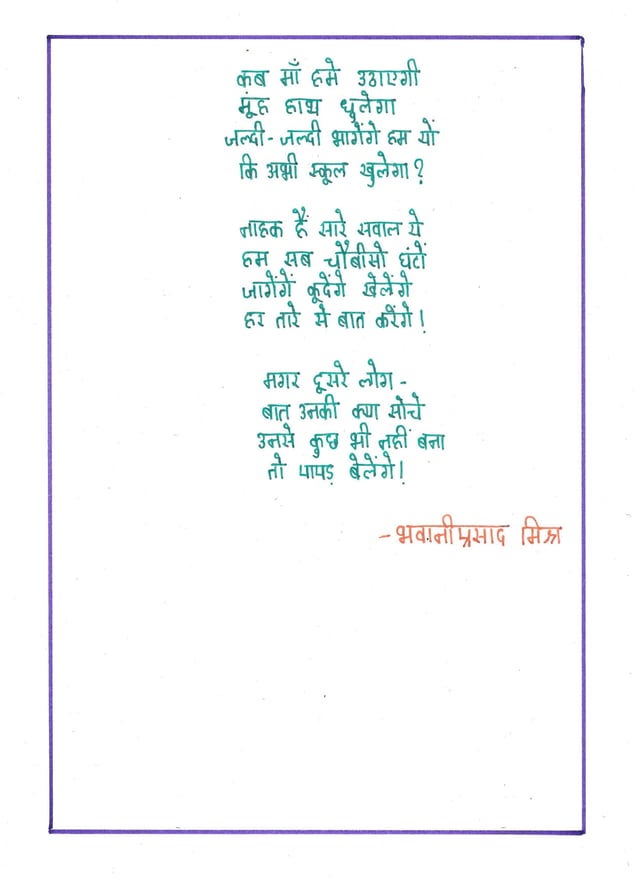 कब माँ हमे उठाएगी
मूंह हाथ धुलेगा
जल्दी-जल्दी भागेंगे हम यों
कि अभी स्कूल खुलेगा?
नाहक हैं सारे सवाल ये
हम सब चौबीसो घंटों
जागेंगें कूदेंगे खेलेंगे
हर तारे से बात करेंगे!
मगर दूसरे लोग -
बात उनकी क्या सोचे
उनसे कुछ भी नहीं बना
तो पापड़ बेलेंगे!
- भवानीप्रसाद मिश्र